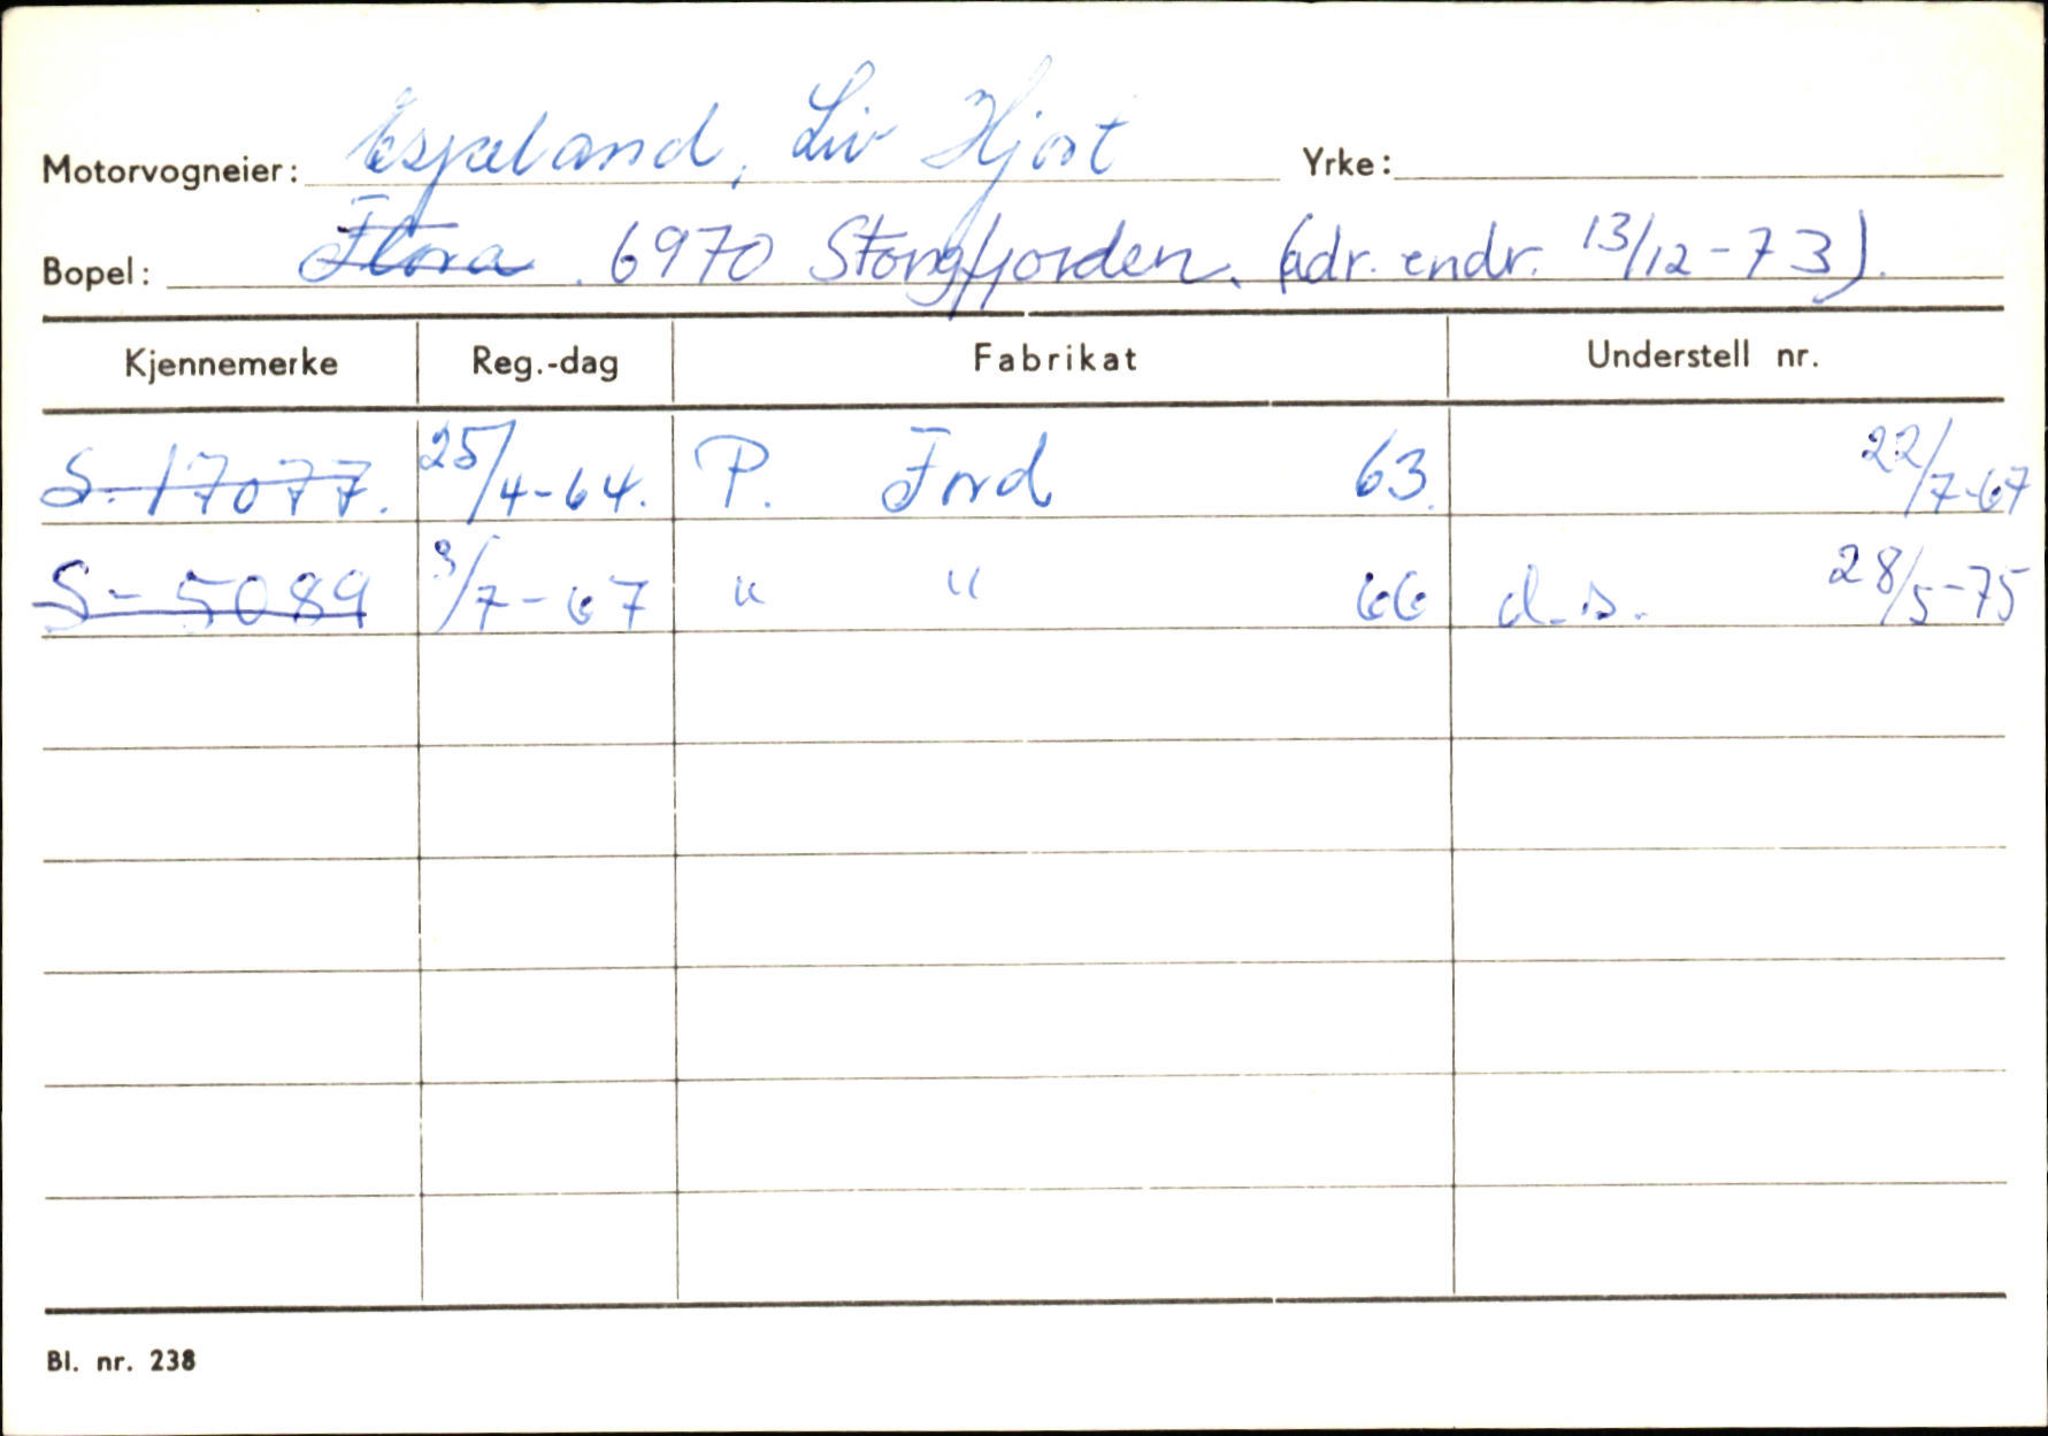 Motorvogneier: Espeland, Liv Hjort Yrke:
Bopel: Flora. 6970 Stongfjorden. (adr. endr. 13/12-73).
Kjennemerke Reg.-dag Fabrikat Understell nr.
S.17077. 25/4-64. P. Ford 63. 22/7-67
S-5089 3/7-67 " " 66 d.s. 28/5-75
Bl. nr. 238